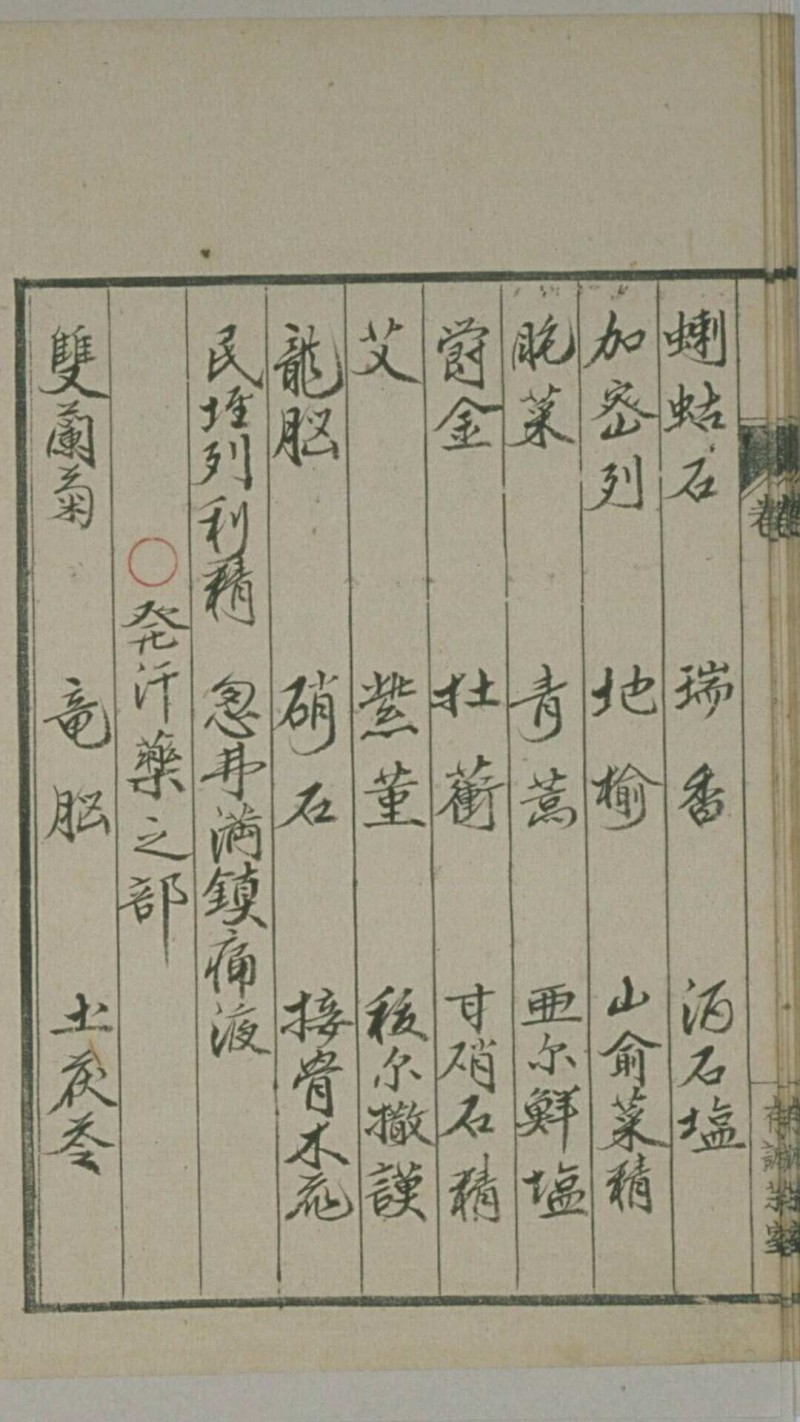 蜊蛄石 瑞香 酒石塩
加密列 地榆 山俞菜精
眊菜 青蒿 亜尓鮮塩
欝金 杜蘅 甘硝石精
艾 紫菫 稜尓撒謨
龍脳 硝石 接骨木花
民垤列利精 忽弗満鎮痛液
○発汗藥之部
雙蘭菊 竜脳 土茯苓